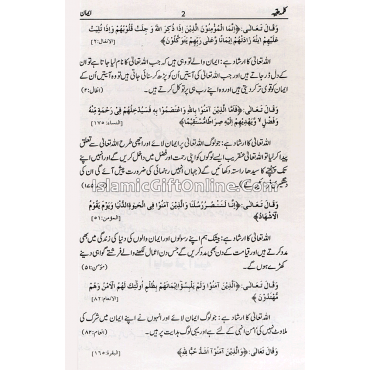 کلمہ طیبہ 2 ایمان
وَقَالَ تَعَالٰی: ﴿اِنَّمَا الْمُؤْمِنُوْنَ الَّذِیْنَ اِذَا ذُکِرَ اللهُ وَجِلَتْ قُلُوْبُهُمْ وَاِذَا تُلِیَتْ
عَلَیْهِمْ اٰیٰتُهٗ زَادَتْهُمْ اِیْمَانًا وَّعَلٰی رَبِّهِمْ یَتَوَکَّلُوْنَ﴾ [الانفال:۲]
اللہ تعالیٰ کا ارشاد ہے: ایمان والے تو وہی ہیں کہ جب اللہ تعالیٰ کا نام لیا جاتا ہے تو ان
کے دل ڈر جاتے ہیں اور جب اللہ تعالیٰ کی آیتیں اُن کو پڑھ کر سنائی جاتی ہیں تو وہ آیتیں اُن کے
ایمان کو قوی تر کر دیتی ہیں اور وہ اپنے رب ہی پر توکل کرتے ہیں۔ (انفال:۲)
وَقَالَ تَعَالٰی: ﴿فَاَمَّا الَّذِیْنَ اٰمَنُوْا بِاللهِ وَاعْتَصَمُوْا بِهٖ فَسَیُدْخِلُهُمْ فِیْ رَحْمَةٍ مِّنْهُ
وَفَضْلٍ وَّیَهْدِیْهِمْ اِلَیْهِ صِرَاطًا مُّسْتَقِیْمًا﴾ [النساء:۱۷۵]
اللہ تعالیٰ کا ارشاد ہے: جو لوگ اللہ تعالیٰ پر ایمان لائے اور اچھی طرح اللہ تعالیٰ سے تعلق
پیدا کر لیا تو اللہ تعالیٰ عنقریب ایسے لوگوں کو اپنی رحمت اور فضل میں داخل کریں گے اور انہیں اپنے
تک پہنچنے کا سیدھا راستہ دکھائیں گے (جہاں انہیں رہنمائی کی ضرورت پیش آئے گی ان کی
IslamicGiftOnline.com
وَقَالَ تَعَالٰی: ﴿اِنَّا لَنَنْصُرُ رُسُلَنَا وَالَّذِیْنَ اٰمَنُوْا فِی الْحَیٰوةِ الدُّنْیَا وَیَوْمَ یَقُوْمُ
الْاَشْهَادُ﴾ [المؤمن:۵۱]
اللہ تعالیٰ کا ارشاد ہے: بیشک ہم اپنے رسولوں اور ایمان والوں کی دنیا کی زندگی میں بھی
مدد کرتے ہیں اور قیامت کے دن بھی مدد کریں گے جس دن اعمال لکھنے والے فرشتے گواہی دینے
کھڑے ہوں گے۔ (مؤمن:۵۱)
وَقَالَ تَعَالٰی: ﴿اَلَّذِیْنَ اٰمَنُوْا وَلَمْ یَلْبِسُوْٓا اِیْمَانَهُمْ بِظُلْمٍ اُولٰٓئِکَ لَهُمُ الْاَمْنُ وَهُمْ
مُّهْتَدُوْنَ﴾ [الانعام:۸۲]
اللہ تعالیٰ کا ارشاد ہے: جو لوگ ایمان لائے اور انہوں نے اپنے ایمان میں شرک کی
ملاوٹ نہیں کی امن انہی کے لئے ہے اور یہی لوگ ہدایت پر ہیں۔ (انعام:۸۲)
وَقَالَ تَعَالٰی: ﴿وَالَّذِیْنَ اٰمَنُوْٓا اَشَدُّ حُبًّا لِّلّٰهِ﴾ [البقرة:۱۶۵]